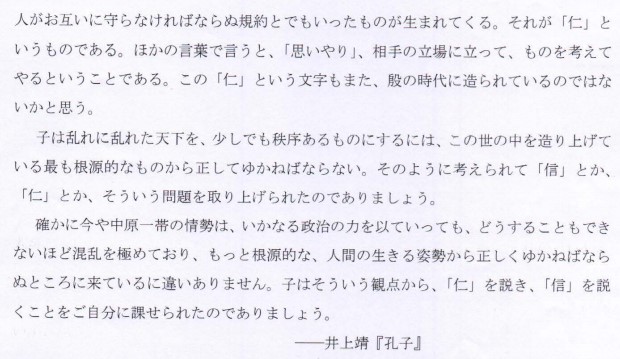 人がお互いに守らなければならぬ規約とでもいったものが生まれてくる。それが「仁」と
いうものである。ほかの言葉で言うと、「思いやり」、相手の立場に立って、ものを考えて
やるということである。この「仁」という文字もまた、殷の時代に造られているのではな
いかと思う。
子は乱れに乱れた天下を、少しでも秩序あるものにするには、この世の中を造り上げて
いる最も根源的なものから正してゆかねばならない。そのように考えられて「信」とか、
「仁」とか、そういう問題を取り上げられたのでありましょう。
確かに今や中原一帯の情勢は、いかなる政治の力を以ていっても、どうすることもでき
ないほど混乱を極めており、もっと根源的な、人間の生きる姿勢から正しくゆかねばなら
ぬところに来ているに違いありません。子はそういう観点から、「仁」を説き、「信」を説
くことをご自分に課せられたのでありましょう。
——井上靖『孔子』